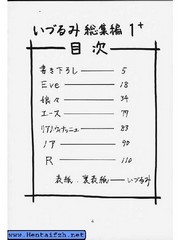 いづるみ 総集編 1+
目次
書き下ろし 5
Eve 18
娘々 34
エース 77
83
ノア 90
R 110
表紙・裏表紙 いづるみ
www.Hentaifzh.net